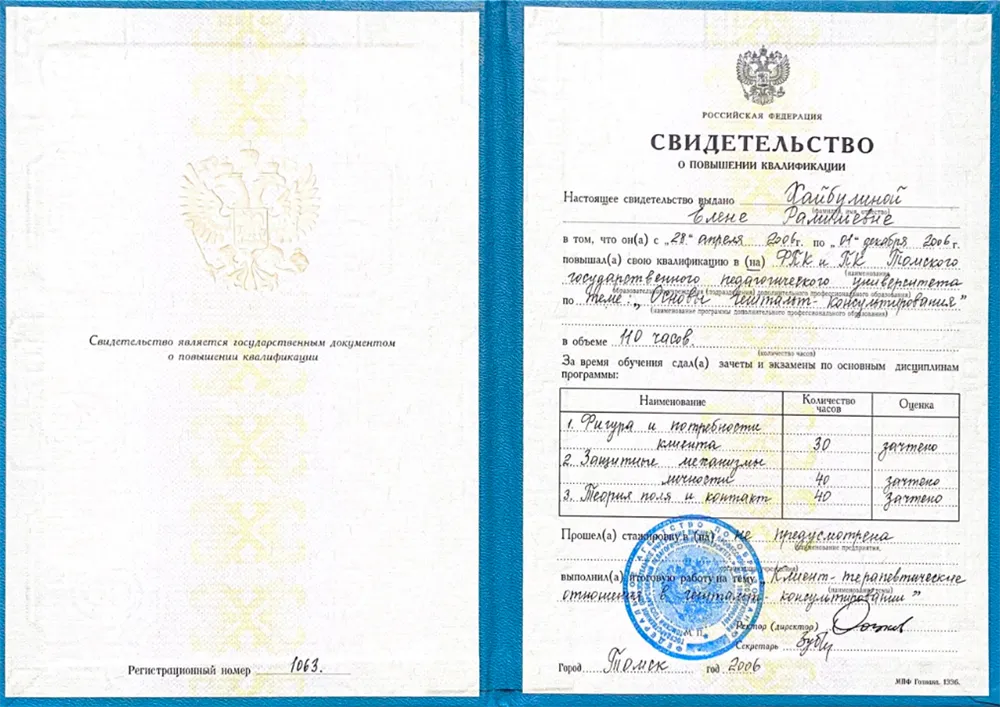 Свидетельство является государственным документом
о повышении квалификации
Регистрационный номер 1063.
РОССИЙСКАЯ ФЕДЕРАЦИЯ
СВИДЕТЕЛЬСТВО
О ПОВЫШЕНИИ КВАЛИФИКАЦИИ
Настоящее свидетельство выдано Хайбулиной
(фамилия, имя, отчество)
Елене Рамильевне
в том, что он(а) с „28“ апреля 2006г. по „01“ декабря 2006г.
повышал(а) свою квалификацию в (на) ФПК и ПК Томского
(наименование
государственного педагогического университета
образовательного учреждения (подразделения) дополнительного профессионального образования)
по теме: „Основы гештальт-консультирования"
(наименование программы дополнительного профессионального образования)
в объеме 110 часов.
(количество часов)
За время обучения сдал(а) зачеты и экзамены по основным дисциплинам
программы:
Наименование Количество часов Оценка
1. Фигура и потребности
клиента 30 зачтено
2. Защитные механизмы
личности 40 зачтено
3. Теория поля и контакт 40 зачтено
Прошел(а) стажировку в (на) не предусмотрена
(наименование предприятия,
организации, учреждения)
выполнил(а) итоговую работу на тему „Клиент-терапевтические
(наименование темы)
отношения в гештальт-консультировании"
М. П.
Ректор (директор)
Секретарь
Город Томск год 2006
МПФ Гознака. 1996.